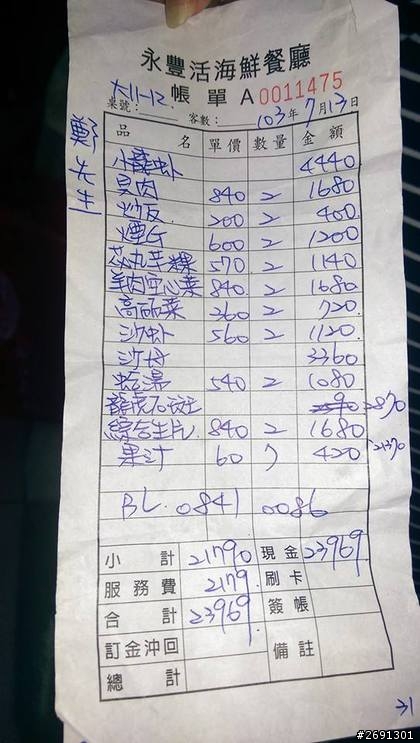 永豐活海鮮餐廳
大11-12 帳單 A 0011475
桌號： 客數： 103年7月13日
鄭先生
品名 單價 數量 金額
小龍虾 4440
840 2 1680
200 2 400
600 2 1200
570 2 1140
羊肉空心菜 840 2 1680
高麗菜 360 2 720
沙虾 560 2 1120
沙母 3360
蛤湯 540 2 1080
龍虎石斑 2870
綜合生片 840 2 1680
果汁 60 7 420 21370
BL. 0841 0086
小計 21790 現金 23969
服務費 2179 刷卡
合計 23969 簽帳
訂金沖回 備註
總計
31
#2691301